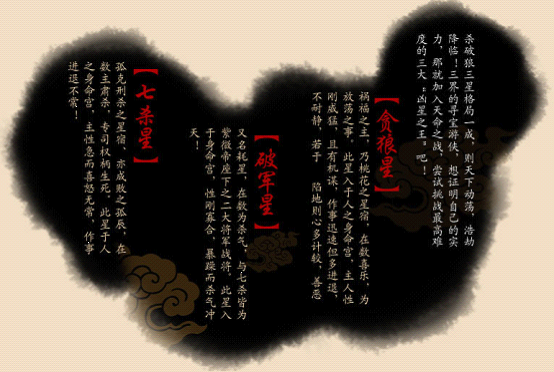 杀破狼三星格局一成，则天下动荡，浩劫
降临！三界的寻宝游侠，想证明自己的实
力，那就加入天命之战，尝试挑战最高难
度的三大“凶星之王”吧！
【贪狼星】
祸福之主，乃桃花之星宿，在数喜乐，为
放荡之事，此星入于人之身命宫，主人性
刚威猛，且有机谋，作事迅速但多进退，
不耐静，若于　陷地则心多计较，善恶
【破军星】
又名耗星，在数为杀气，与七杀皆为
紫微帝座下之二大将军战将，此星入
于身命宫，性刚寡合，暴躁而杀气冲
天！
【七杀星】
孤克刑杀之星宿，亦成败之孤辰，在
数主肃杀，专司权柄生死。此星于人
之身命宫，主性急而喜怒无常，作事
进退不常！